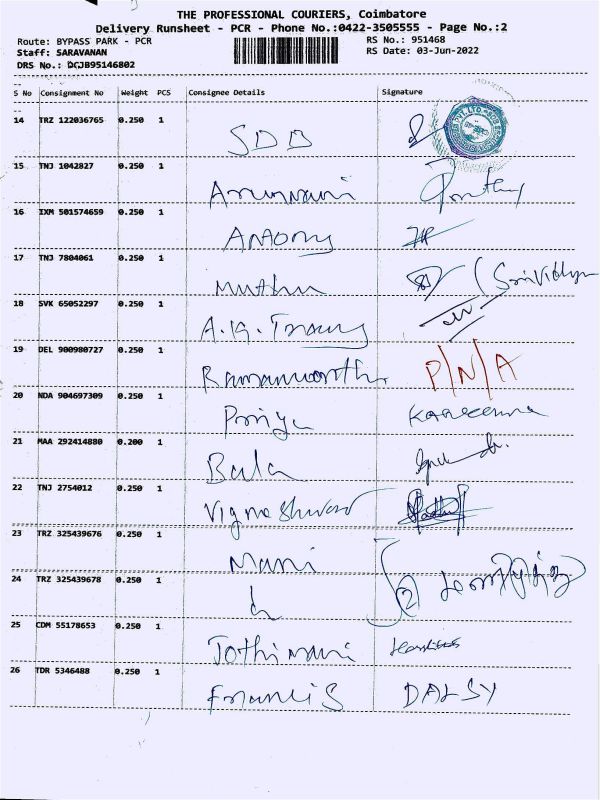 THE PROFESSIONAL COURIERS, Coimbatore
Delivery Runsheet - PCR - Phone No.:0422-3505555 - Page No.:2
Route: BYPASS PARK - PCR
RS No.: 951468
Staff: SARAVANAN
RS Date: 03-Jun-2022
DRS No.: DCJB95146802
S No Consignment No Weight PCS Consignee Details Signature
14 TRZ 122036765 0.250 1
SDB
15 TNJ 1042827 0.250 1
16 IXM 501574659 0.250 1
Antony
17 TNJ 7804061 0.250 1
Muthu (Srividhya
18 SVK 65052297 0.250 1
A.K.
19 DEL 900980727 0.250 1
P/N/A
20 NDA 904697309 0.250 1
Priya Kareema
21 MAA 292414880 0.200 1
Bala
22 TNJ 2754012 0.250 1
Vigneshwar
23 TRZ 325439676 0.250 1
Mani
24 TRZ 325439678 0.250 1
25 CDM 55178653 0.250 1
Jothimani
26 TDR 5346488 0.250 1
Francis DAISY